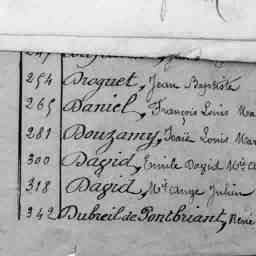 254 Droguet, Jean Baptiste
265 Daniel, François Louis Ma
281 Douzamy, Isaïe Louis Mar
300 David, Emile David
318 David, Mie Ange Julien
342 Dubreil de Pontbriant, René